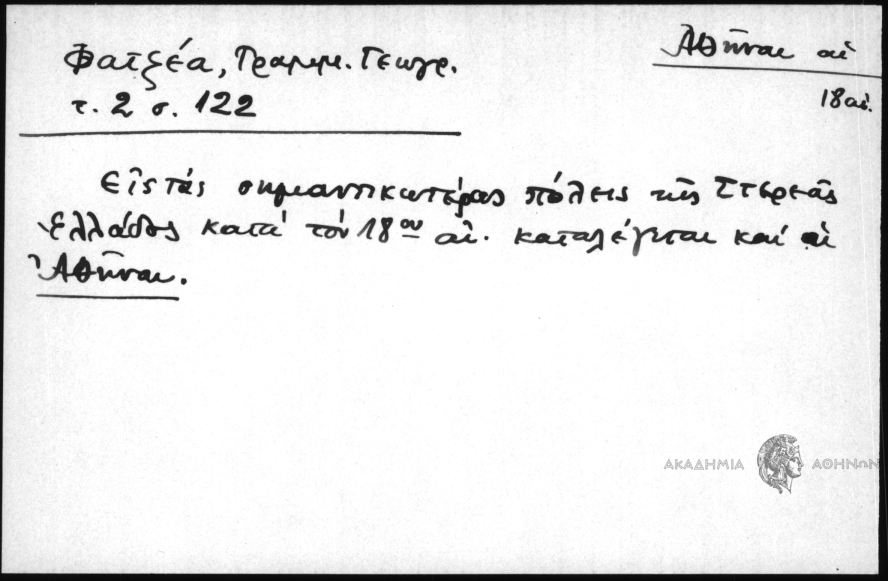 Φατζέα, Γραμμ. Γεωγρ.
τ. 2 σ. 122
Ἀθῆναι αἱ
18 αἰ.
Εἰς τάς σημαντικωτέρας πόλεις τῆς Στερεᾶς
Ἑλλάδος κατά τόν 18ον αἰ. καταλέγεται καί αἱ
Ἀθῆναι.
ΑΚΑΔΗΜΙΑ ΑΘΗΝΩΝ